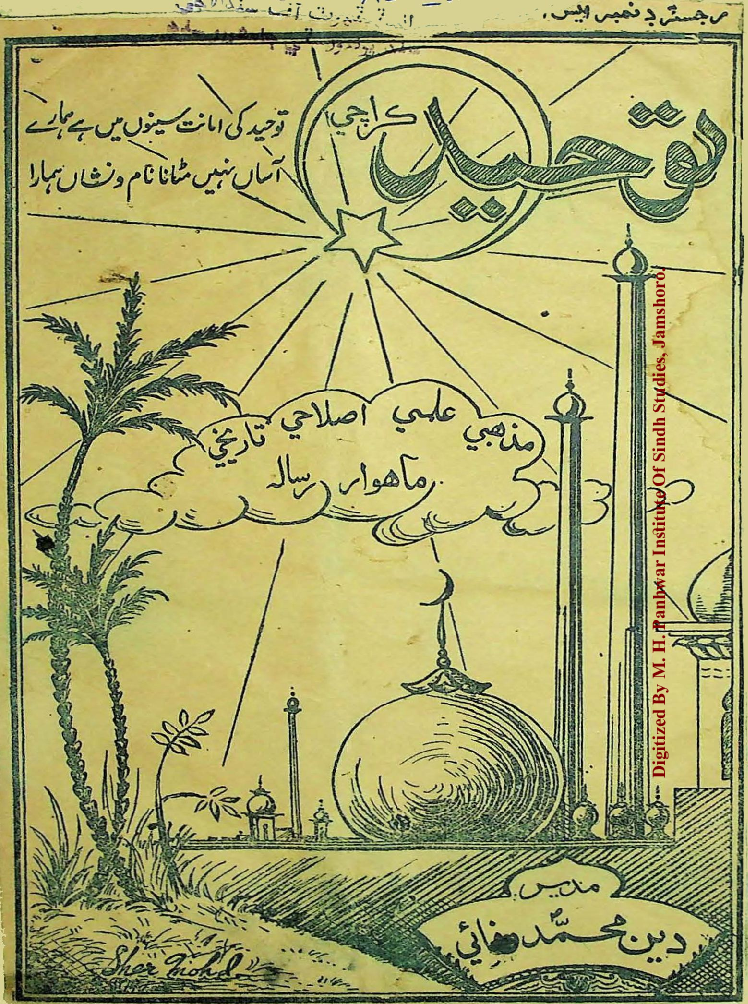 رجسٽرڊ نمبر ايس.
توحيد
ڪراچي
توحید کی امانت سینوں میں ہے ہمارے
آساں نہیں مٹانا نام و نشاں ہمارا
مذهبي علمي اصلاحي تاريخي
ماهوار رسالہ
مدير
دين محمد وفائي
Sher Mohd
Digitized By M. H. Panhwar Institute Of Sindh Studies, Jamshoro.